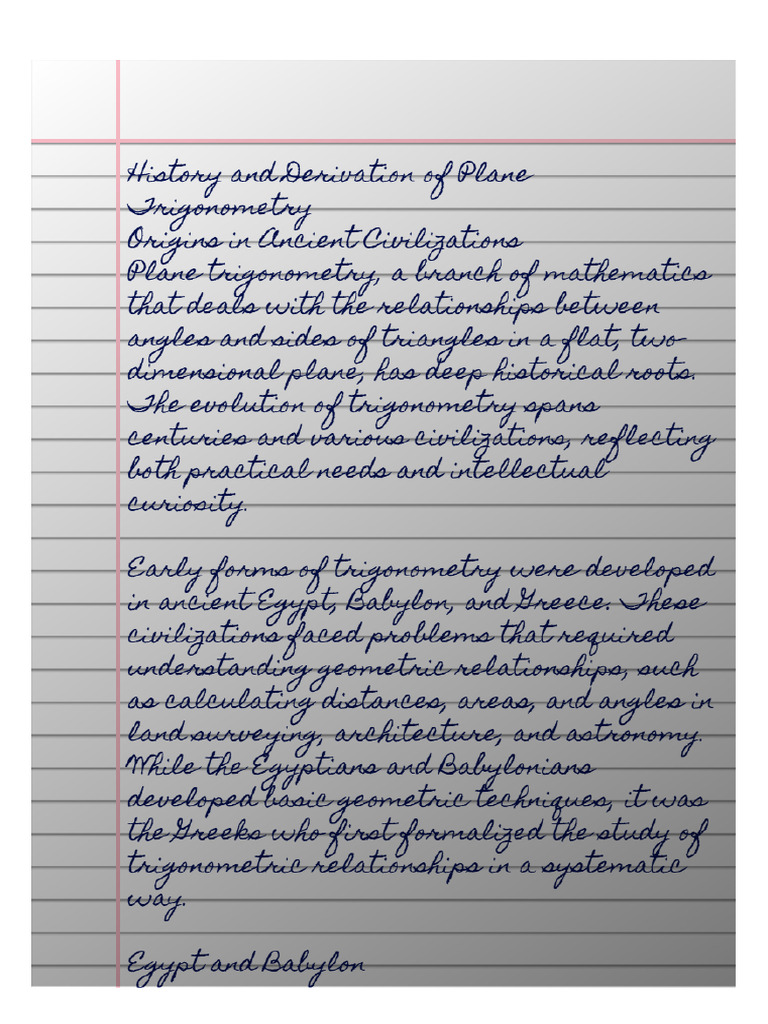 History and Derivation of Plane
Trigonometry
Origins in Ancient Civilizations
Plane trigonometry, a branch of mathematics
that deals with the relationships between
angles and sides of triangles in a flat, two-
dimensional plane, has deep historical roots.
The evolution of trigonometry spans
centuries and various civilizations, reflecting
both practical needs and intellectual
curiosity.
Early forms of trigonometry were developed
in ancient Egypt, Babylon, and Greece. These
civilizations faced problems that required
understanding geometric relationships, such
as calculating distances, areas, and angles in
land surveying, architecture, and astronomy.
While the Egyptians and Babylonians
developed basic geometric techniques, it was
the Greeks who first formalized the study of
trigonometric relationships in a systematic
way.
Egypt and Babylon